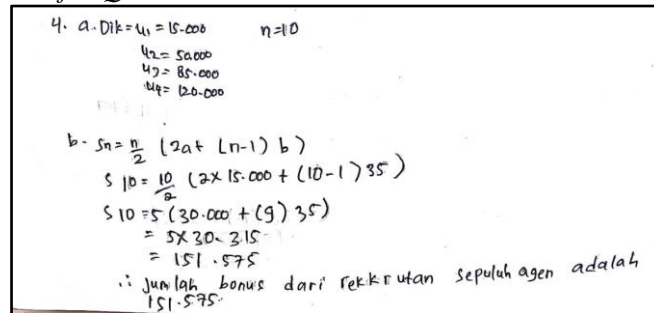 4. a. Dik = u1 = 15.000 n=10
u2 = 50.000
u3 = 85.000
u4 = 120.000
b. Sn = n/2 (2a + (n-1) b)
S 10 = 10/2 (2 x 15.000 + (10-1) 35)
S 10 = 5 (30.000 + (9) 35)
= 5 x 30.315
= 151.575
∴ jumlah bonus dari rekkrutan sepuluh agen adalah
151.575.